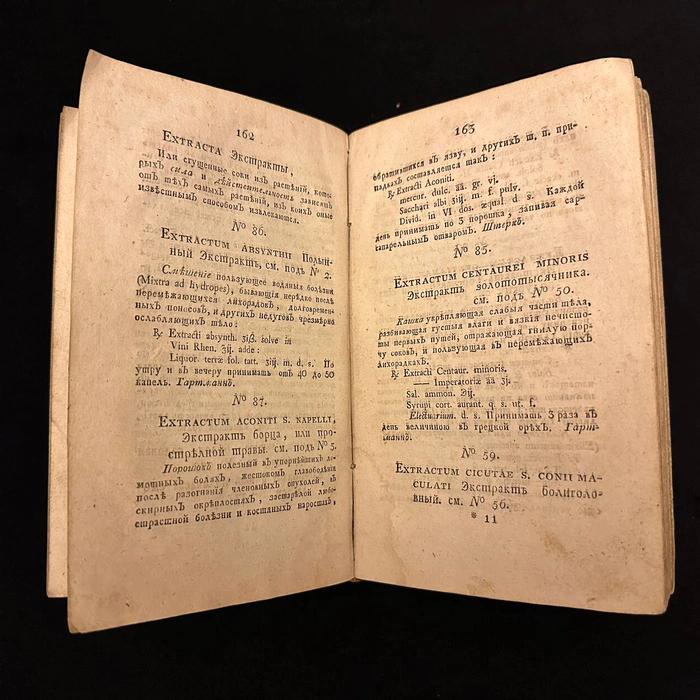 162
EXTRACTA Экстракты,
Или сгущенные соки изъ растѣній, кото-
рыхъ сила и дѣйствительность зависитъ
отъ тѣхъ самыхъ растѣній, изъ коихъ оные
извѣстнымъ способомъ извлекаются.
No 86.
EXTRACTUM ABSYNTHII Полын-
ный Экстрактъ, см. подъ No 2.
Смѣшеніе пользующее водяныя болѣзни
(Mixtra ad hydropes), бывающія нерѣдко послѣ
перемѣжающихся лихорадокъ, долговремен-
ныхъ поносовъ, и другихъ недуговъ чрезмѣрно
ослабляющихъ тѣло:
℞ Extracti absynth. ʒiß. solve in
Vini Rhen. ℥ij. adde:
Liquor. terræ fol. tart. ʒiij. m. d. s. По
утру и въ вечеру принимать отъ 40 до 50
капель. Гартманнъ.
No 87.
EXTRACTUM ACONITI S. NAPELLI,
Экстрактъ борца, или про-
стрѣлной травы. см. подъ No 5.
Порошокъ полезный въ упорнѣйшихъ ло-
мотныхъ боляхъ, жестокомъ главоболѣніи
послѣ разогнанія членовныхъ опухолей, въ
скирныхъ окрѣплостяхъ, застарѣлой любо-
страстной болѣзни и костяныхъ наростяхъ,
163
обратившихся въ язву, и другихъ т. п. при-
падкахъ составляется такъ:
℞ Extracti Aconiti.
mercur. dulc. āā. gr. vj.
Sacchari albi ʒiij. m. f. pulv.
Divid. in VI dos. æqual. d. s. Каждой
день принимать по 3 порошка, запивая сар-
сапарельнымъ отваромъ. Штеркъ.
No 85.
EXTRACTUM CENTAUREI MINORIS
Экстрактъ золототысячника.
см. подъ No 50.
Кашка укрѣпляющая слабыя части тѣла,
разбивающая густыя влаги и вязкія нечисто-
ты первыхъ путей, отражающая гнилую пор-
чу соковъ, и пользующая въ перемѣжающихъ
лихорадкахъ.
℞ Extracti Centaur. minoris.
—— Imperatoriæ āā ʒj.
Sal. ammon. ℈ij.
Syrupi cort. aurant. q. s. ut f.
Electuarium. d. s. Принимать 3 раза въ
день величиною въ грецкой орѣхъ. Гарт-
маннъ.
No 59.
EXTRACTUM CICUTAE S. CONII MA-
CULATI Экстрактъ болиголо-
вный. см. No 56.
* 11